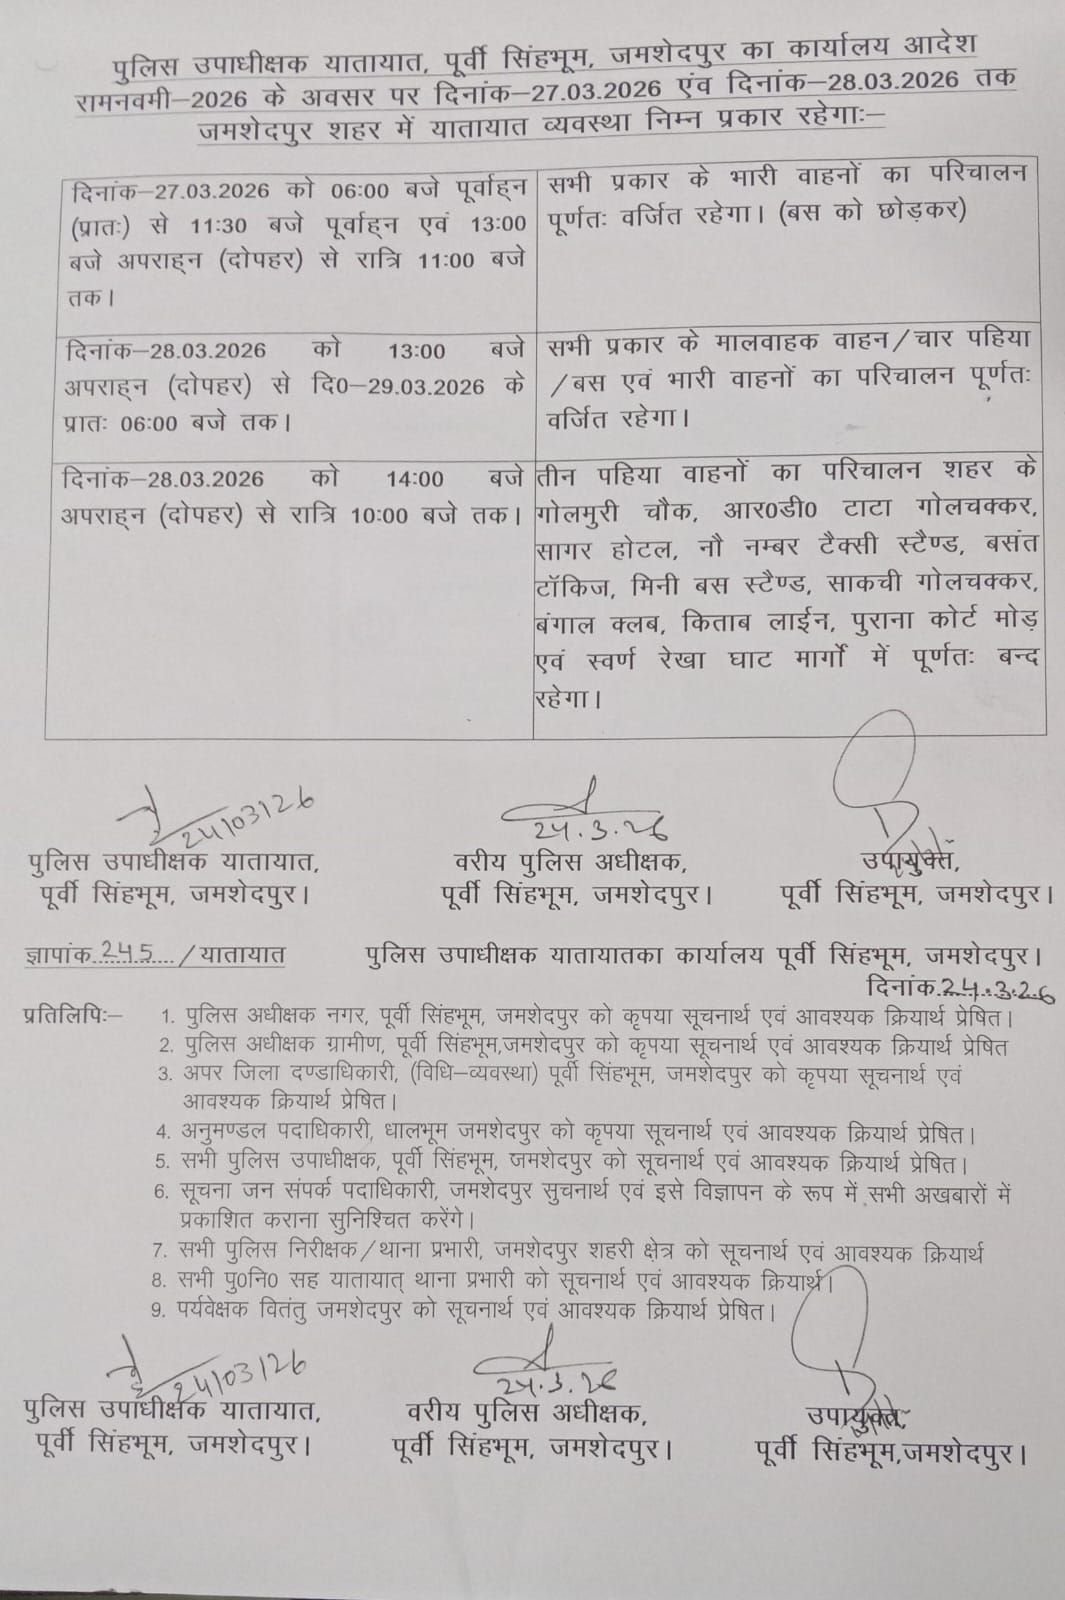 पुलिस उपाधीक्षक यातायात, पूर्वी सिंहभूम, जमशेदपुर का कार्यालय आदेश
रामनवमी–2026 के अवसर पर दिनांक–27.03.2026 एंव दिनांक–28.03.2026 तक
जमशेदपुर शहर में यातायात व्यवस्था निम्न प्रकार रहेगाः–
दिनांक–27.03.2026 को 06:00 बजे पूर्वाह्न
(प्रातः) से 11:30 बजे पूर्वाह्न एवं 13:00
बजे अपराह्न (दोपहर) से रात्रि 11:00 बजे
तक।
सभी प्रकार के भारी वाहनों का परिचालन
पूर्णतः वर्जित रहेगा। (बस को छोड़कर)
दिनांक–28.03.2026 को 13:00 बजे
अपराह्न (दोपहर) से दि0–29.03.2026 के
प्रातः 06:00 बजे तक।
सभी प्रकार के मालवाहक वाहन/चार पहिया
/बस एवं भारी वाहनों का परिचालन पूर्णतः
वर्जित रहेगा।
दिनांक–28.03.2026 को 14:00 बजे
अपराह्न (दोपहर) से रात्रि 10:00 बजे तक।
तीन पहिया वाहनों का परिचालन शहर के
गोलमुरी चौक, आर0डी0 टाटा गोलचक्कर,
सागर होटल, नौ नम्बर टैक्सी स्टैण्ड, बसंत
टॉकिज, मिनी बस स्टैण्ड, साकची गोलचक्कर,
बंगाल क्लब, किताब लाईन, पुराना कोर्ट मोड़
एवं स्वर्ण रेखा घाट मार्गों में पूर्णतः बन्द
रहेगा।
24/03/26
24.3.26
पुलिस उपाधीक्षक यातायात,
पूर्वी सिंहभूम, जमशेदपुर।
वरीय पुलिस अधीक्षक,
पूर्वी सिंहभूम, जमशेदपुर।
उपायुक्त,
पूर्वी सिंहभूम, जमशेदपुर।
ज्ञापांक 245 /यातायात पुलिस उपाधीक्षक यातायातका कार्यालय पूर्वी सिंहभूम, जमशेदपुर।
दिनांक 24.3.26
प्रतिलिपिः– 1. पुलिस अधीक्षक नगर, पूर्वी सिंहभूम, जमशेदपुर को कृपया सूचनार्थ एवं आवश्यक क्रियार्थ प्रेषित।
2. पुलिस अधीक्षक ग्रामीण, पूर्वी सिंहभूम,जमशेदपुर को कृपया सूचनार्थ एवं आवश्यक क्रियार्थ प्रेषित
3. अपर जिला दण्डाधिकारी, (विधि–व्यवस्था) पूर्वी सिंहभूम, जमशेदपुर को कृपया सूचनार्थ एवं
आवश्यक क्रियार्थ प्रेषित।
4. अनुमण्डल पदाधिकारी, धालभूम जमशेदपुर को कृपया सूचनार्थ एवं आवश्यक क्रियार्थ प्रेषित।
5. सभी पुलिस उपाधीक्षक, पूर्वी सिंहभूम, जमशेदपुर को सूचनार्थ एवं आवश्यक क्रियार्थ प्रेषित।
6. सूचना जन संपर्क पदाधिकारी, जमशेदपुर सुचनार्थ एवं इसे विज्ञापन के रूप में सभी अखबारों में
प्रकाशित कराना सुनिश्चित करेंगे।
7. सभी पुलिस निरीक्षक/थाना प्रभारी, जमशेदपुर शहरी क्षेत्र को सूचनार्थ एवं आवश्यक क्रियार्थ
8. सभी पु0नि0 सह यातायात् थाना प्रभारी को सूचनार्थ एवं आवश्यक क्रियार्थ।
9. पर्यवेक्षक वितंतु जमशेदपुर को सूचनार्थ एवं आवश्यक क्रियार्थ प्रेषित।
24/03/26
24.3.26
पुलिस उपाधीक्षक यातायात,
पूर्वी सिंहभूम, जमशेदपुर।
वरीय पुलिस अधीक्षक,
पूर्वी सिंहभूम, जमशेदपुर।
उपायुक्त,
पूर्वी सिंहभूम,जमशेदपुर।